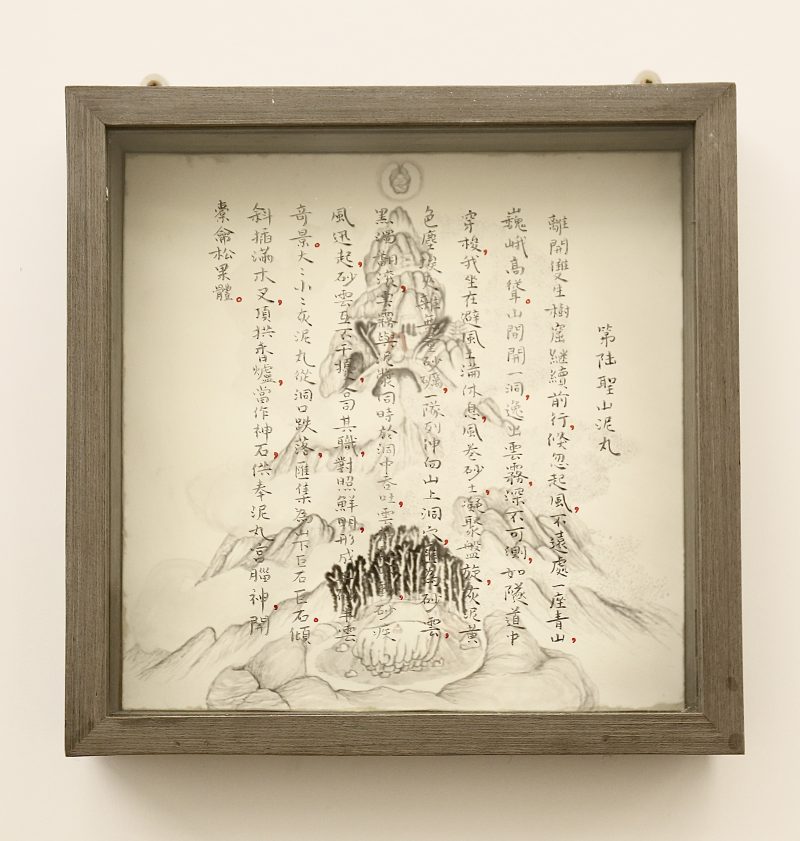 第陆聖山泥丸
離開雙生樹窟継續前行,倏忽起風,不遠處一座青山,
巍峨高聳。山開開一洞,逸出雲霧,深不可測,如隧道中
穿梭,我坐在避風土滿休息,風卷砂土,凝聚盤旋,灰泥黄
色塵埃夾雜 量砂礪,一隊列冲向山上洞穴,匯為砂雲,
黑 翻滾,雲霧與泥漿同時於洞中吞吐,雲 砂疾
風迅起,砂雲互不干擾,各司其職,對照鮮明,形成 雲
奇景。大大小小灰泥丸從洞口跌落,匯集為山下巨石。巨石傾
斜插滿木叉,頂拱香爐,當作神石,供奉泥丸宮腦神,開
橐龠松果體。